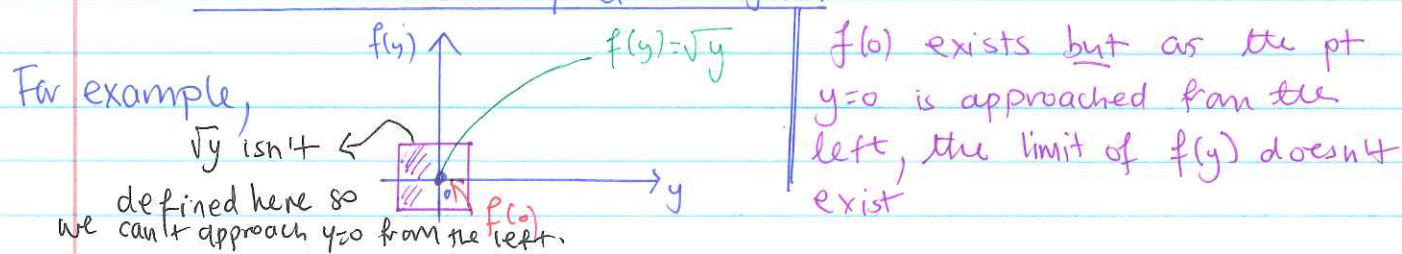 f(y)
f(y)=√y
For example,
√y isn't
defined here so
we can't approach y=0 from the left.
0
y
f(0)
f(0) exists but as the pt
y=0 is approached from the
left, the limit of f(y) doesn't
exist